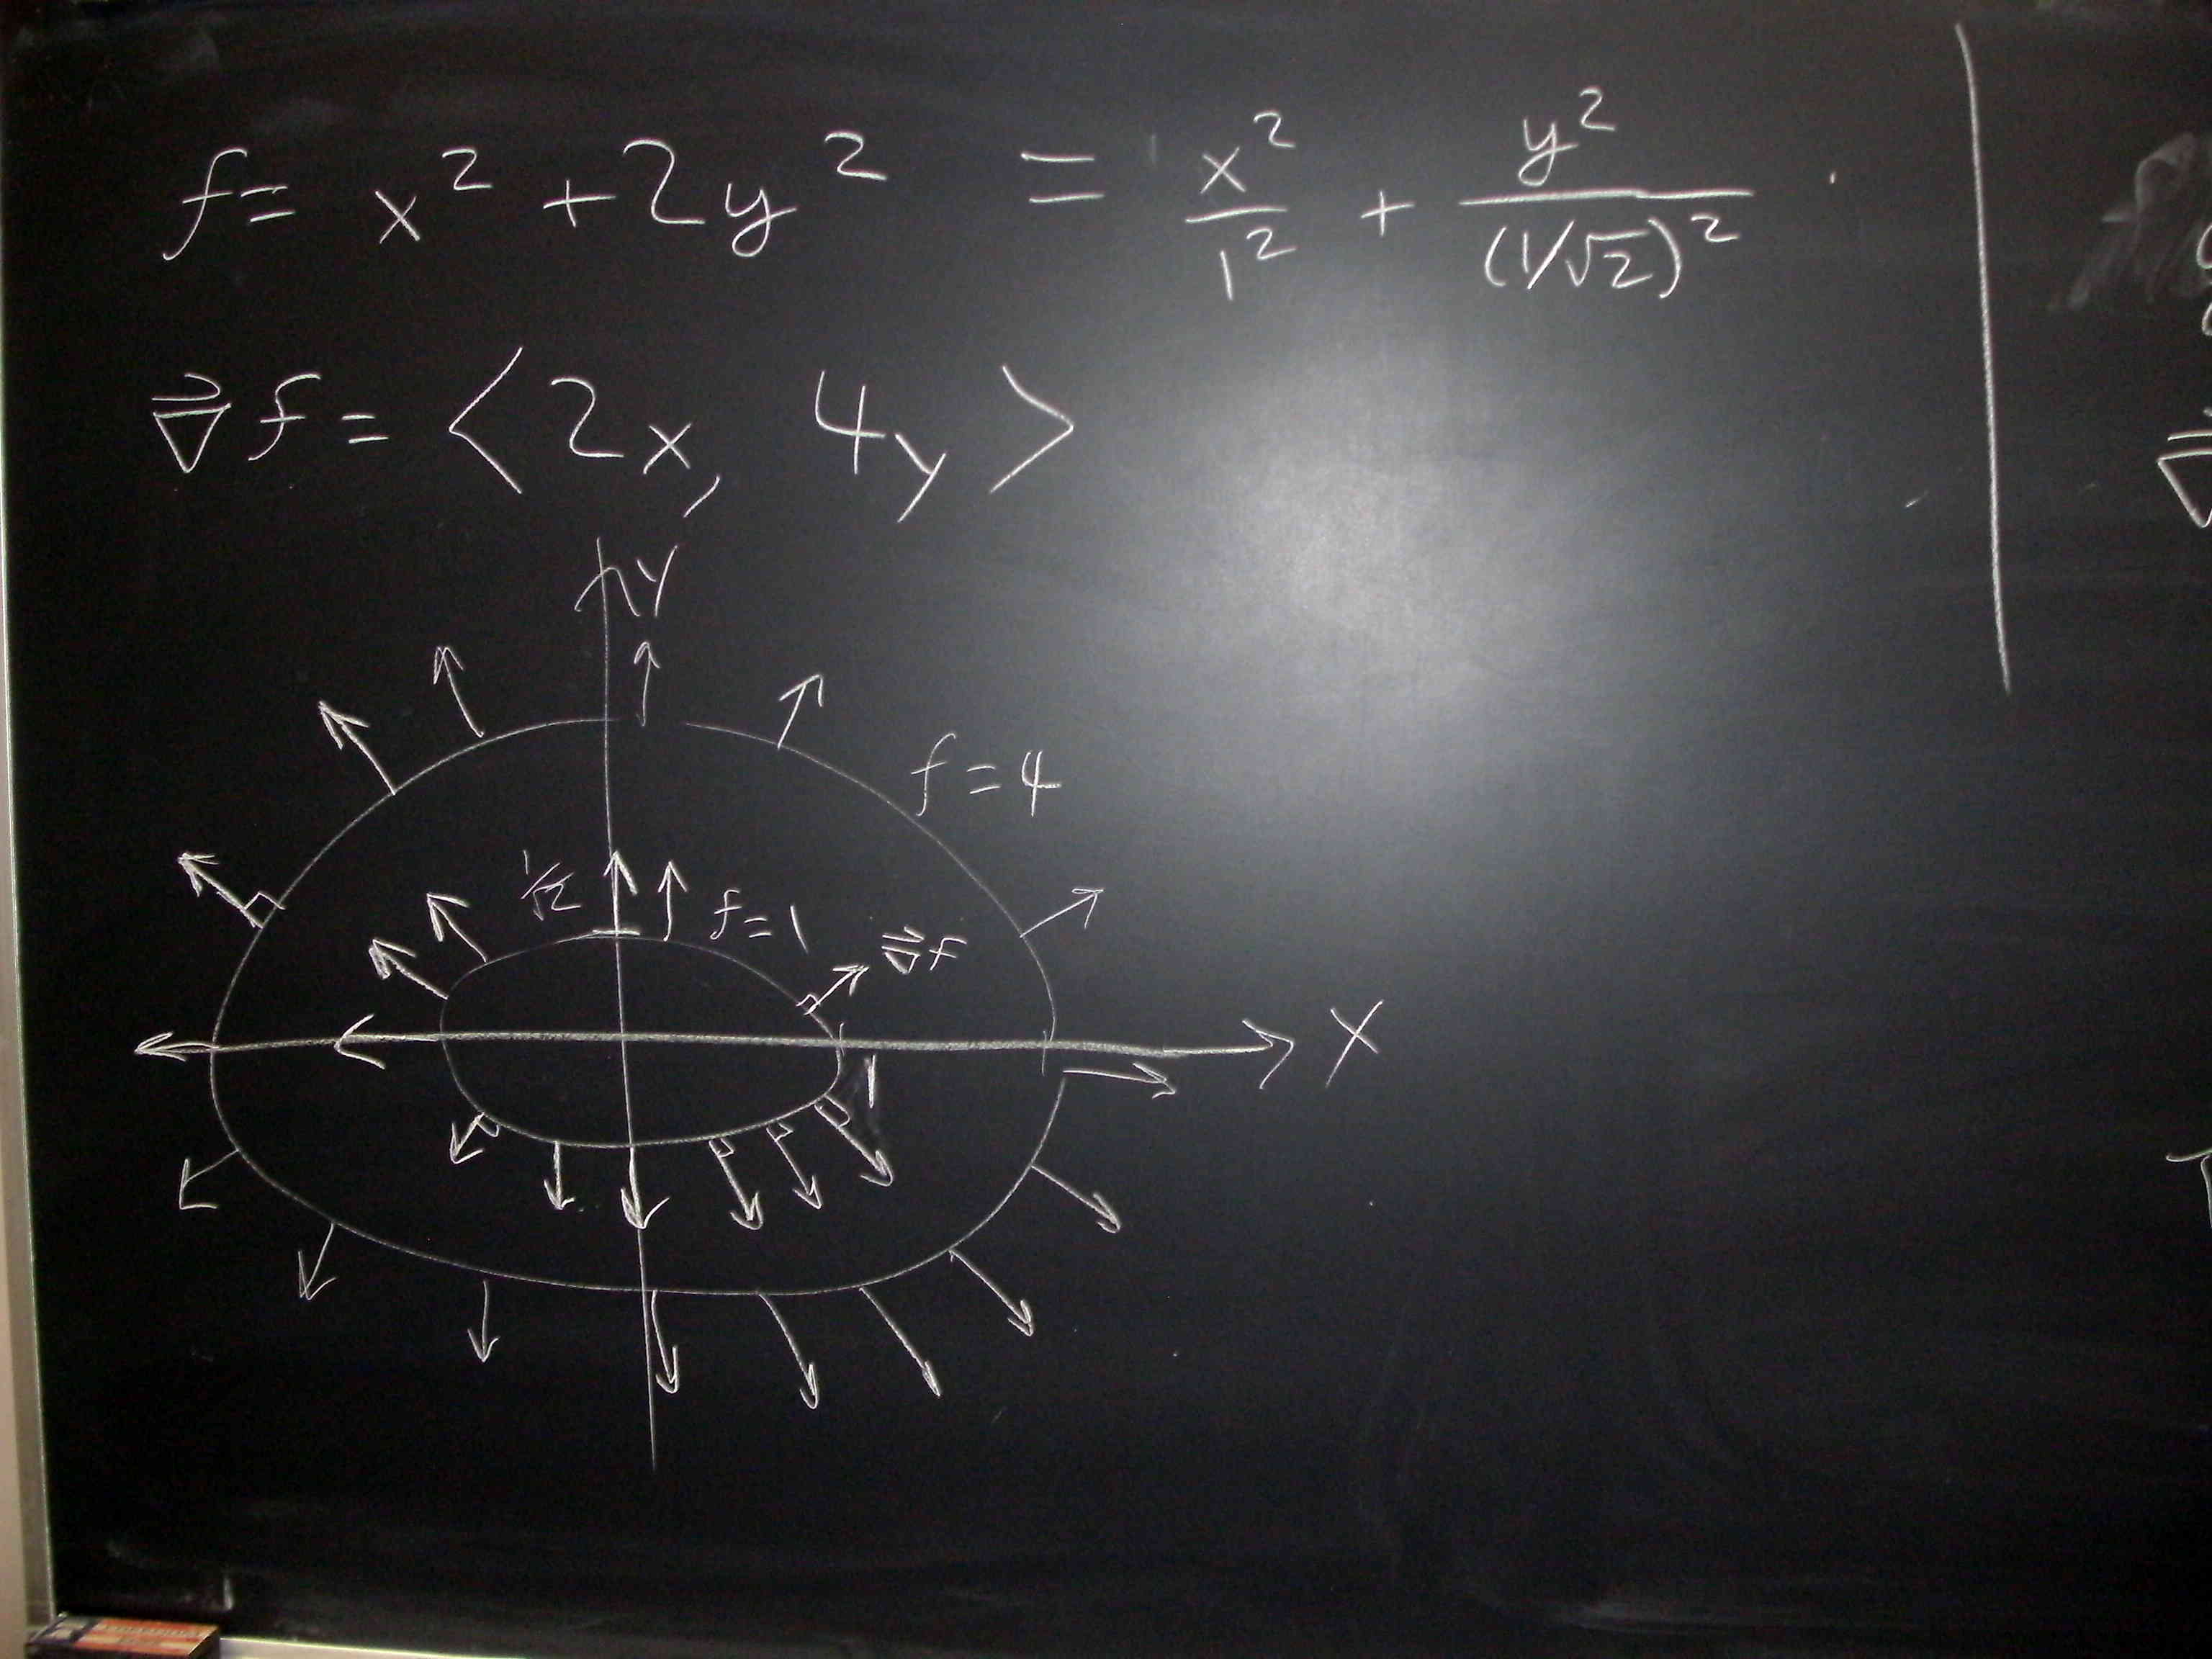 f = x² + 2y² = x²/1² + y²/(1/√2)²
∇⃗f = ⟨2x, 4y⟩
y
f = 4
1/√2
f = 1
∇⃗f
x
1